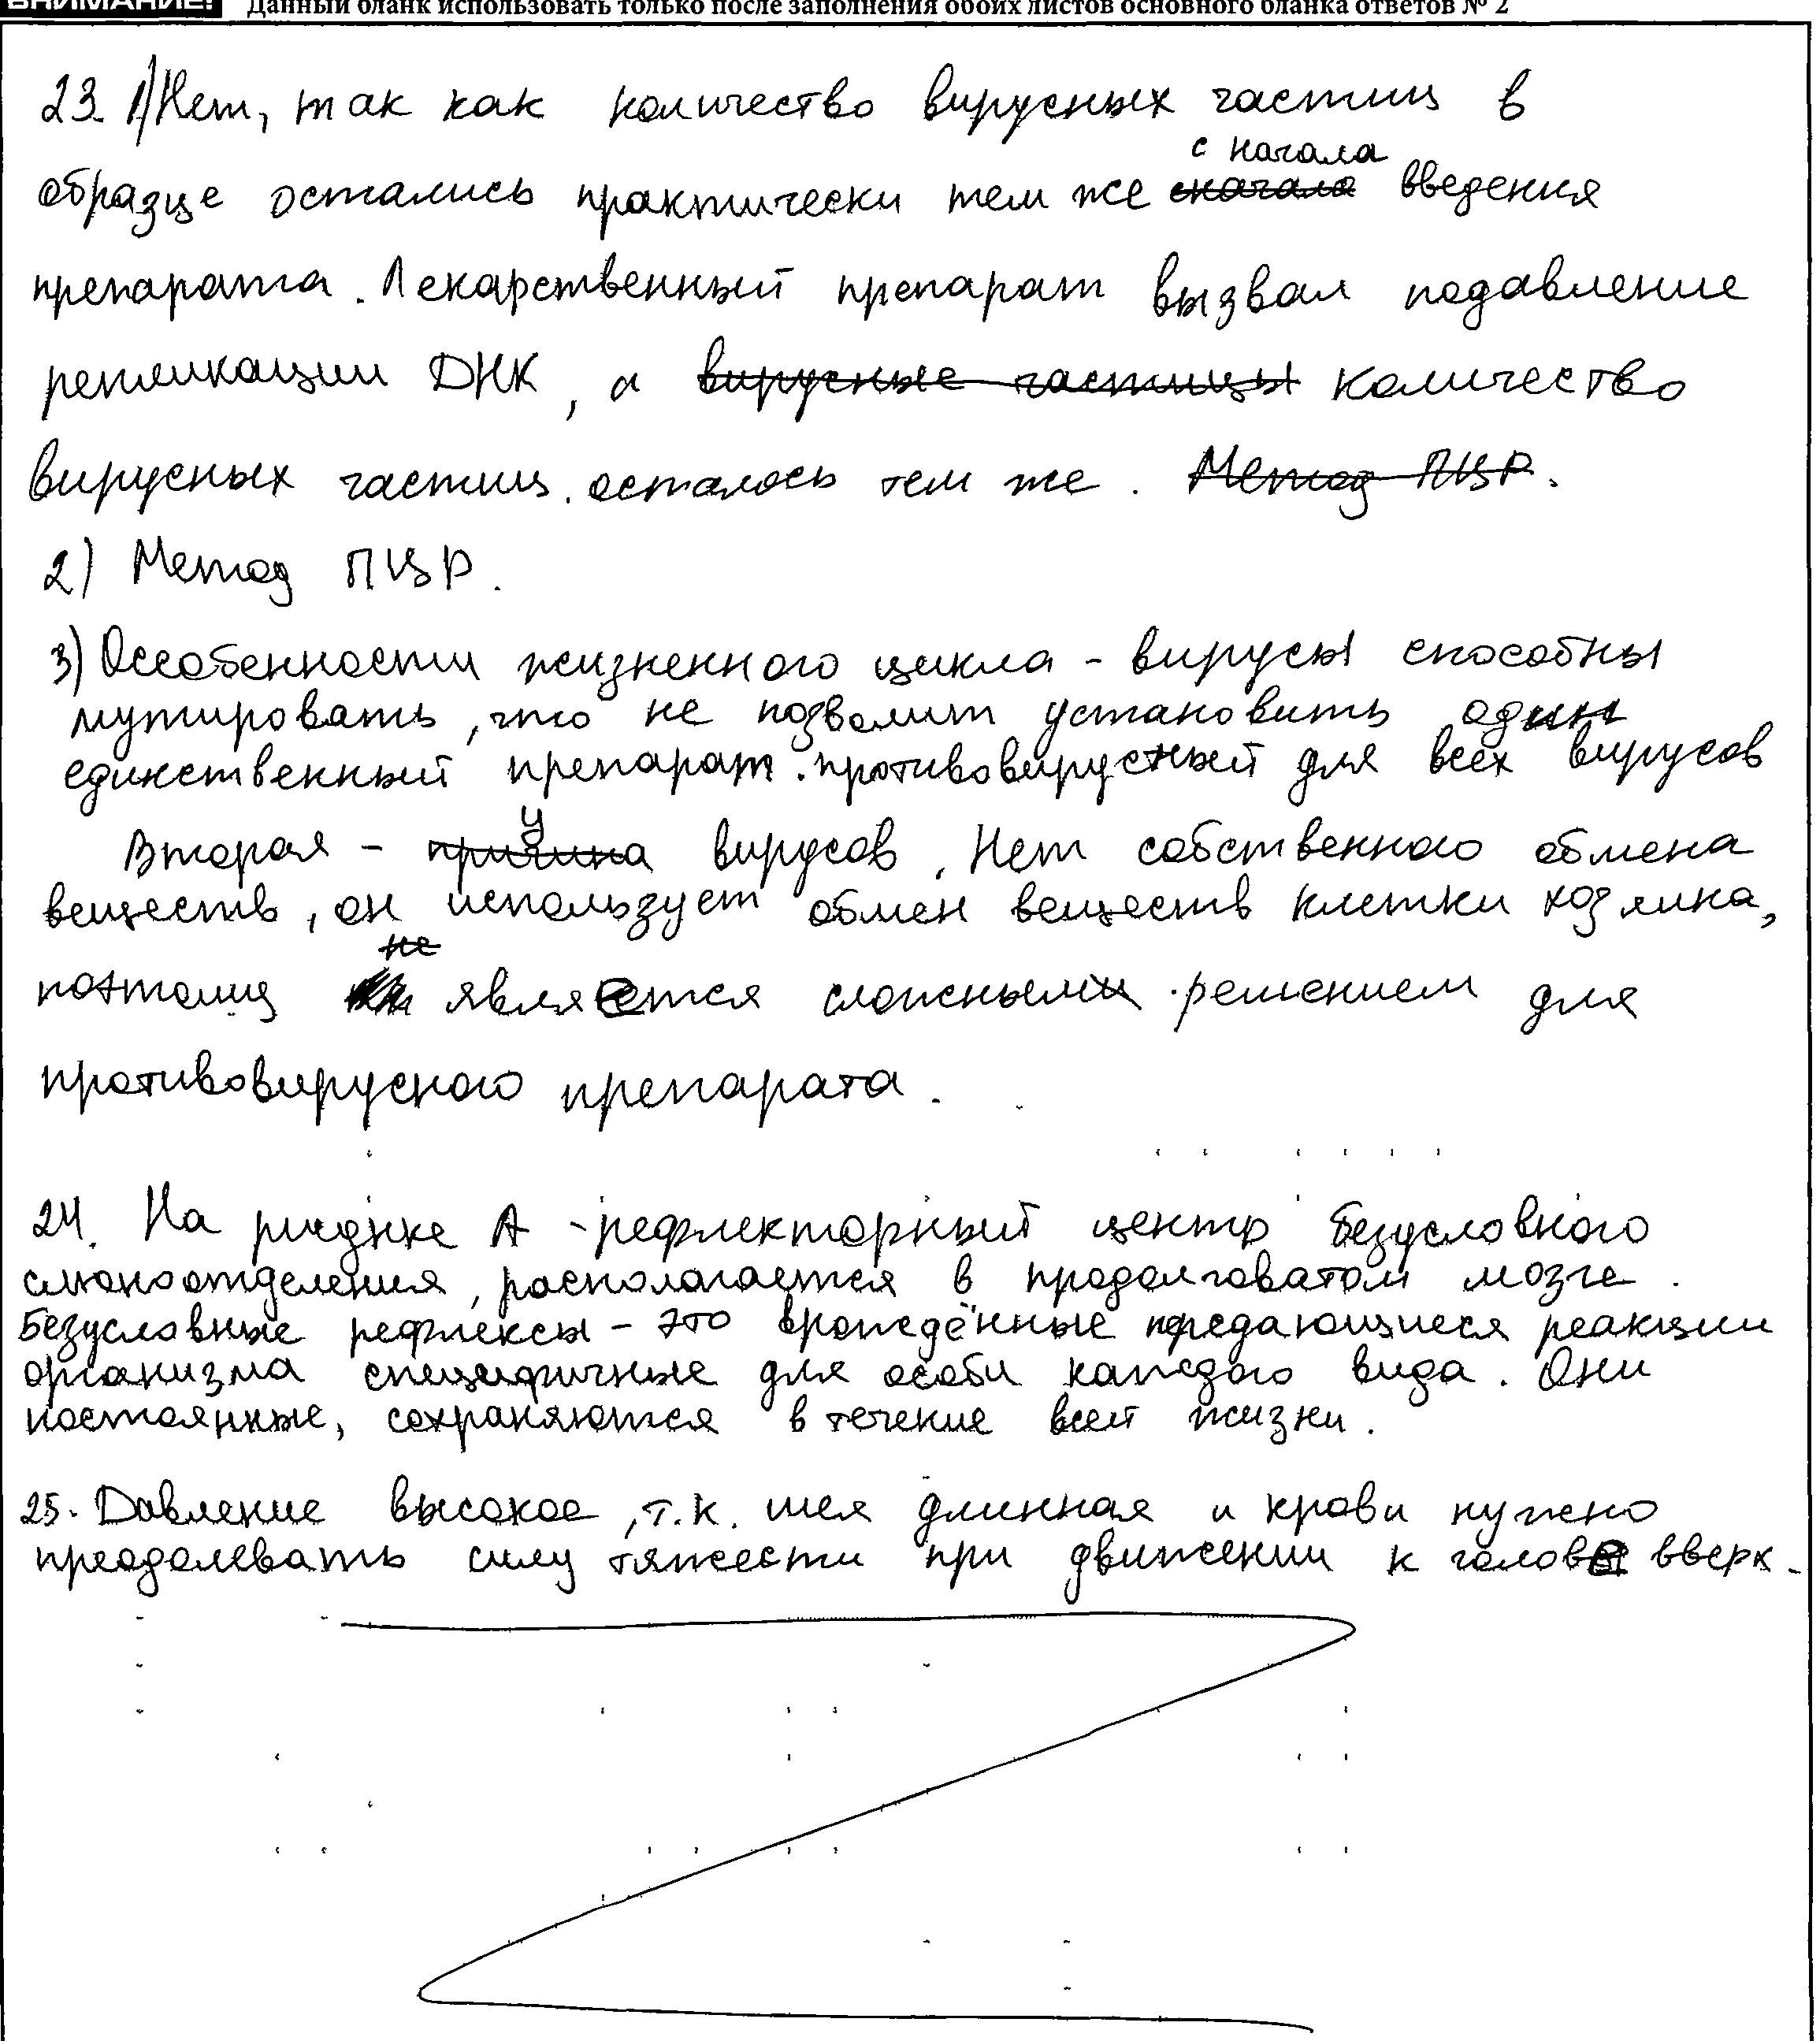 ВНИМАНИЕ! Данный бланк использовать только после заполнения обоих листов основного бланка ответов № 2
23. 1) Нет, так как количество вирусных частиц в
с начала
образце остались практически тем же сначала введения
препарата. Лекарственный препарат вызвал подавление
репликации ДНК, а вирусные частицы количество
вирусных частиц осталось тем же. Метод ПЦР.
2) Метод ПЦР.
3) Особенности жизненного цикла - вирусы способны
мутировать, что не позволит установить один
единственный препарат противовирусный для всех вирусов
у
Вторая - причина вирусов. Нет собственного обмена
веществ, он использует обмен веществ клетки хозяина,
не
поэтому является сложными решением для
противовирусного препарата.
24. На рисунке А - рефлекторный центр безусловного
слюноотделения, располагается в продолговатом мозге.
Безусловные рефлексы - это врождённые передающиеся реакции
организма специфичные для особи каждого вида. Они
постоянные, сохраняются в течение всей жизни.
25. Давление высокое, т.к. шея длинная и крови нужно
преодолевать силу тяжести при движении к голове вверх.